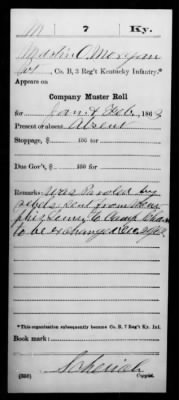 M 7 Ky.
Martin O. Morgan
Co. B, 3 Reg't Kentucky Infantry.*
Appears on
Company Muster Roll
for Jan & Feb, 1863
Present or absent Absent
Stoppage, $ 100 for
Due Gov't, $ 100 for
Remarks: Was Paroled by
rebels. Sent from Mem
phis, Tenn., to Camp Chase
to be exchanged
*This organization subsequently became Co. B, 7 Reg't Ky. Inf.
Book mark:
(358) Copyist.